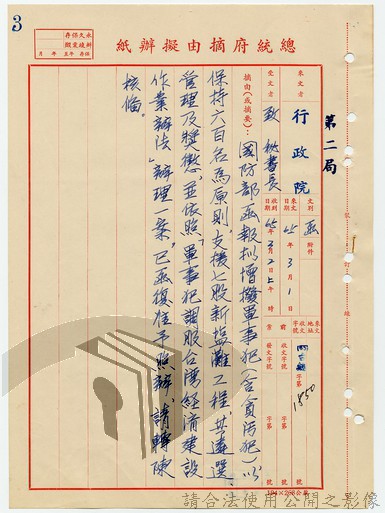 3
總統府摘由擬辦紙
第二局
來文者
行政院
文別
函
附件
受文者
致 秘書長
來文日期
65年3月1日
收到日期
65年3月2日上午 時
字第1850號
摘由(或摘要):
國防部函報擬增撥軍事犯(含貪污犯)以
保持六百名為原則,支援七股新塩灘工程,其遴選、
管理及獎懲,並依照「軍事犯調服台灣經濟建設
作業辦法」辦理一案,已函復准予照辦,請轉陳
核備。
194×268公釐
請合法使用公開之影像